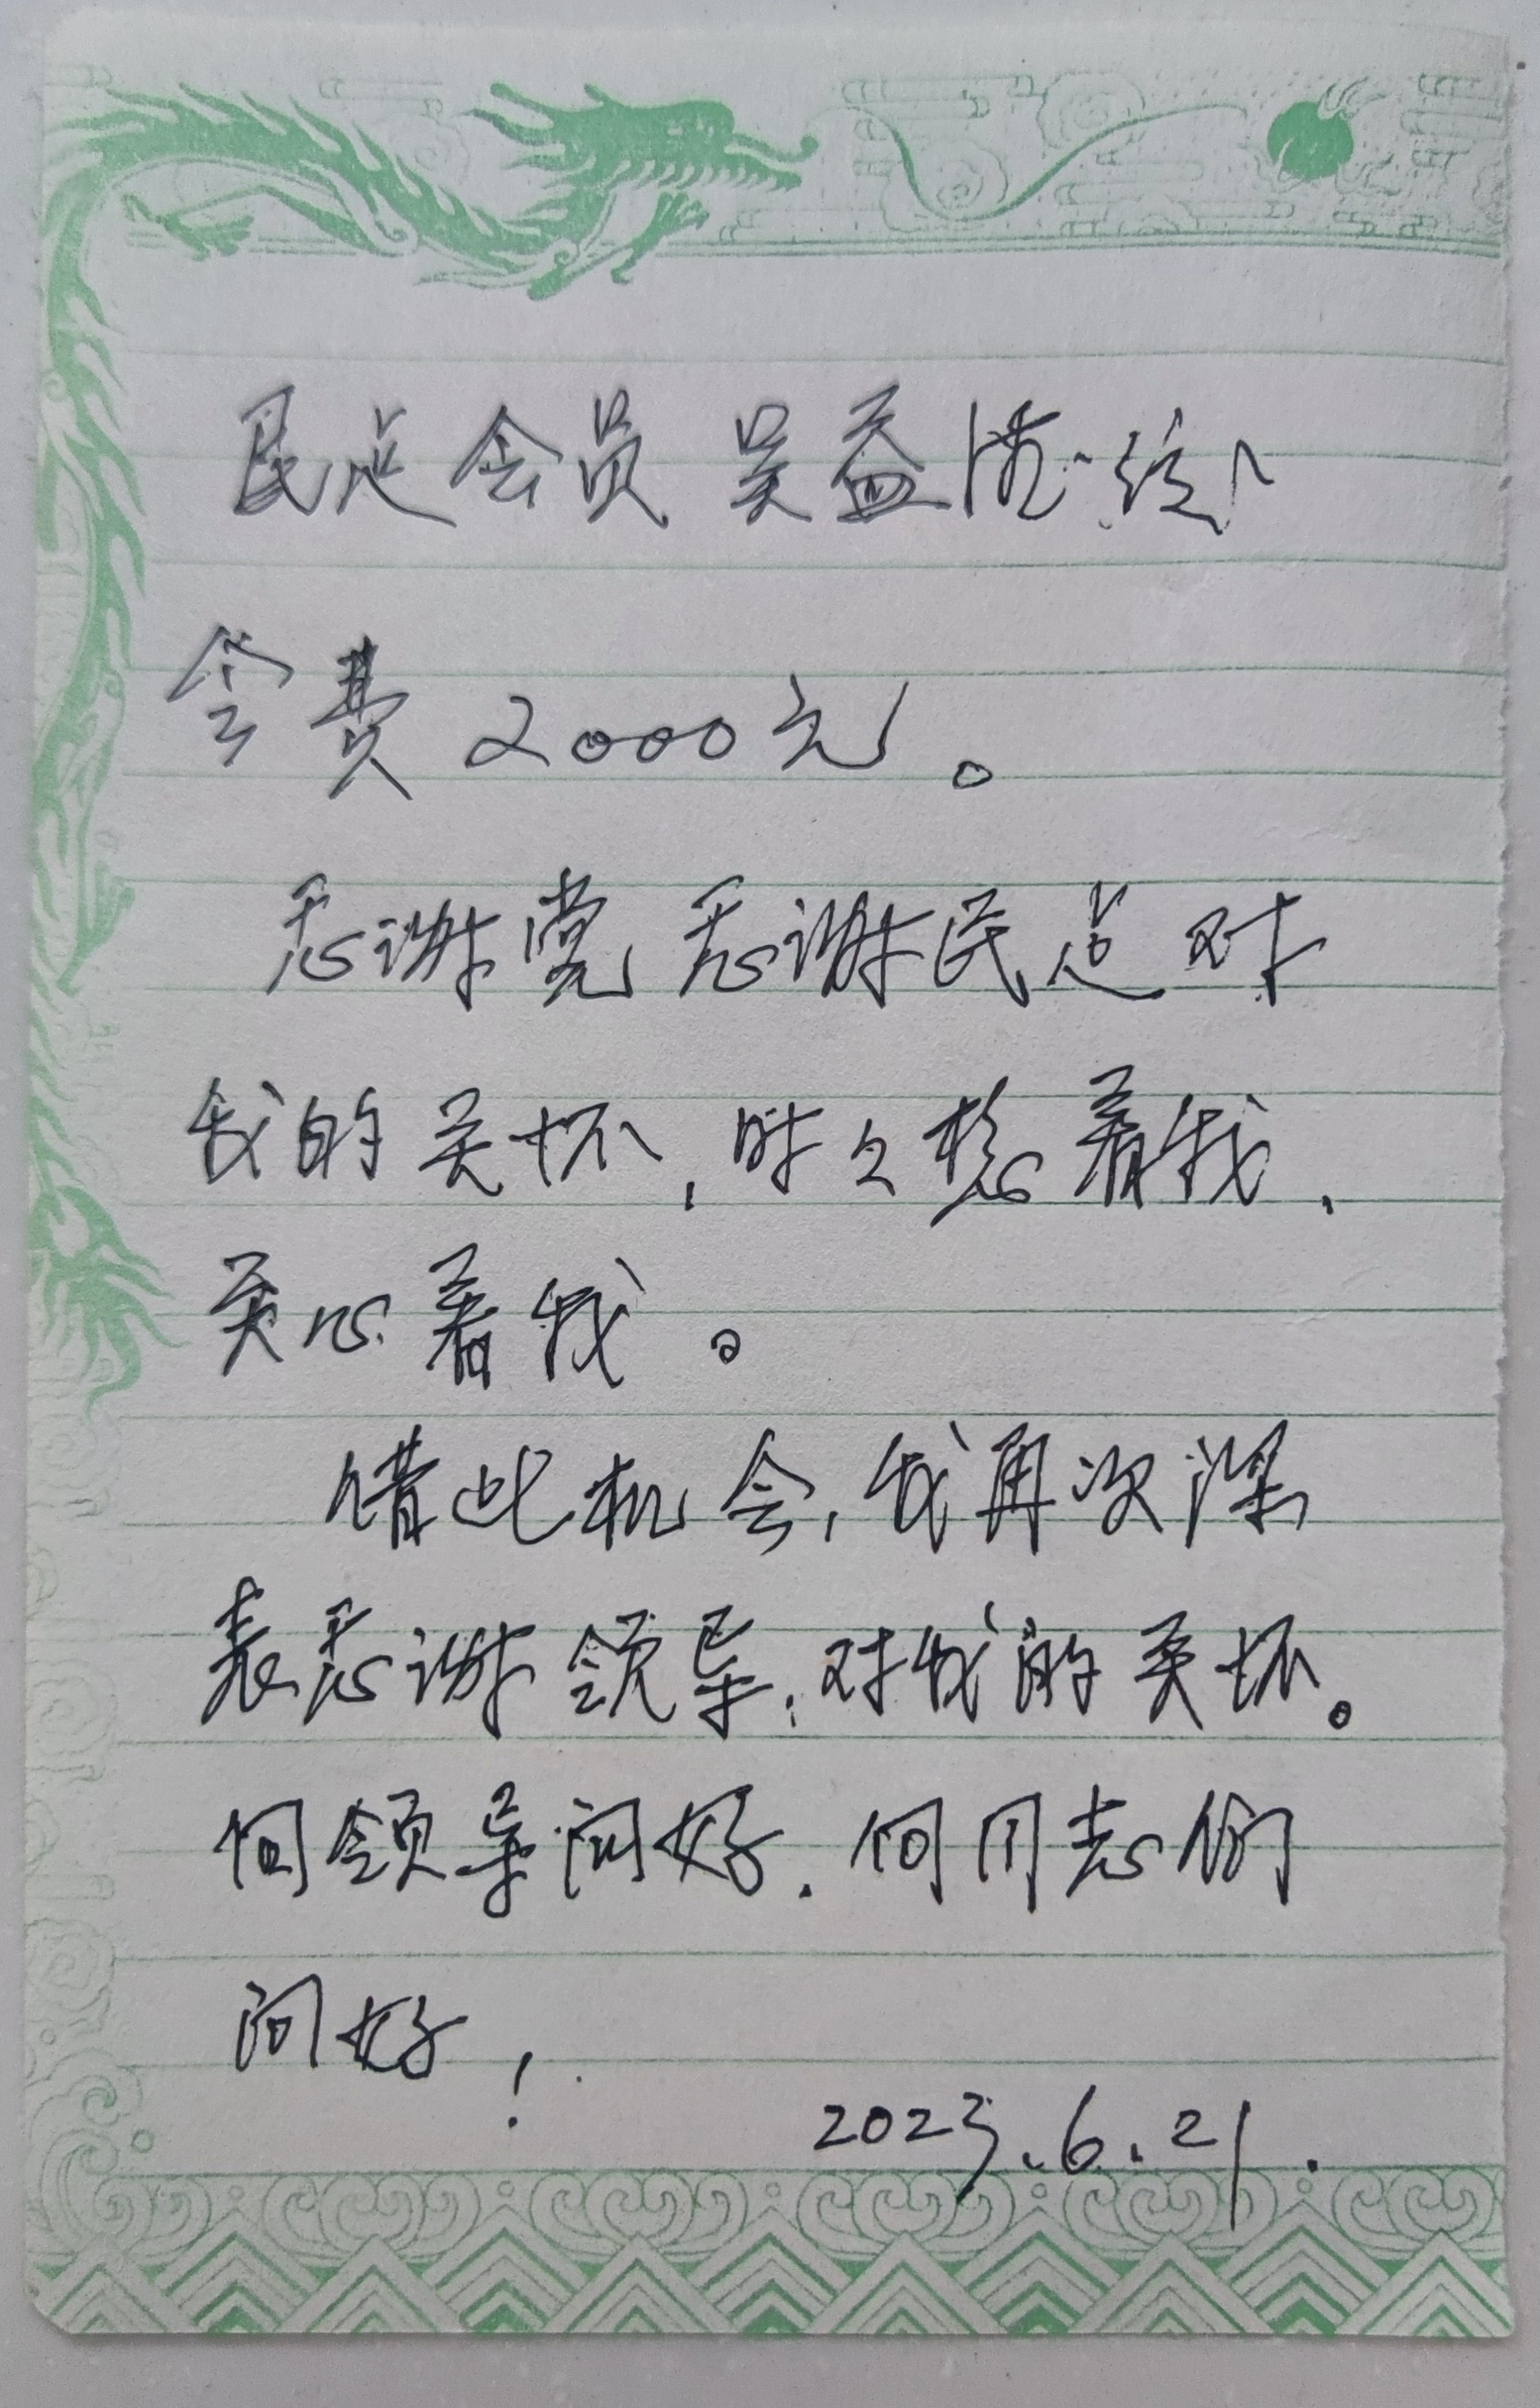 民进会员 吴益 缴
会费2000元。
感谢党 感谢民进对
我的关怀,时时想着我,
关心着我。
借此机会,我再次深
表感谢领导,对我的关怀。
向领导问好.向同志们
问好!
2023.6.21.